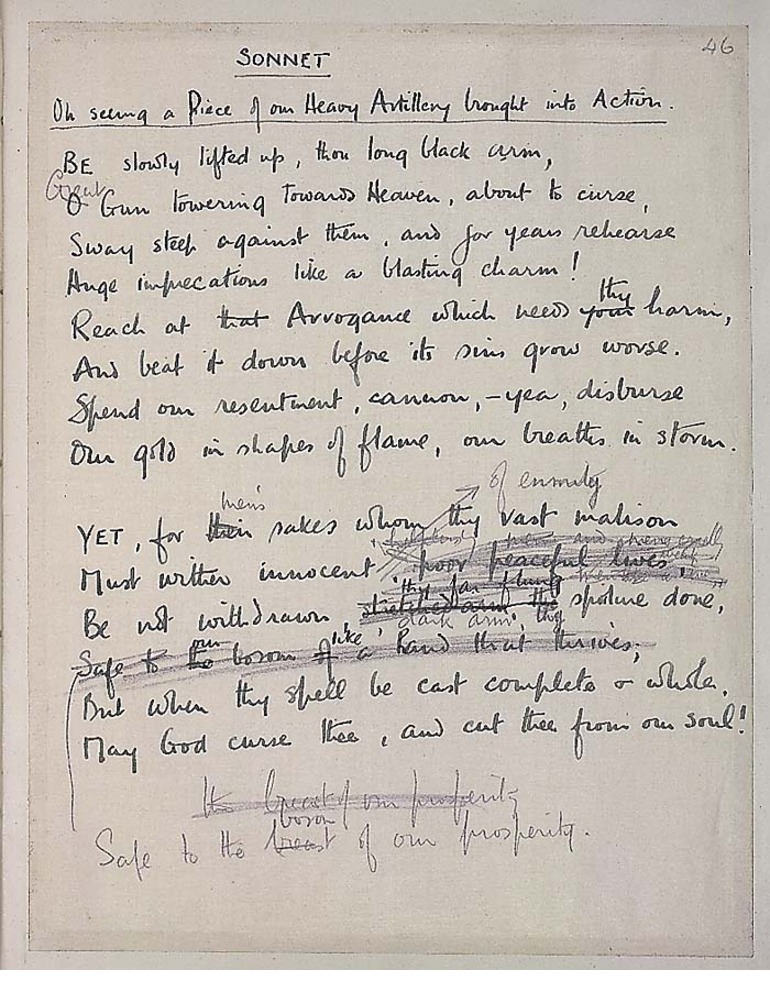 46
SONNET
On seeing a Piece of our Heavy Artillery brought into Action.
BE slowly lifted up, thou long black arm,
Great
O Gun towering towards Heaven, about to curse,
Sway steep against them, and for years rehearse
Huge imprecations like a blasting charm!
thy
Reach at that Arrogance which needs your harm,
And beat it down before its sins grow worse.
Spend our resentment, cannon, – yea, disburse
Our gold in shapes of flame, our breaths in storm.
of enmity
men's
YET, for their sakes whom thy vast malison
Must wither innocent poor peaceful lives,
thy far flung
Be not withdrawn, stretched arm, the spoilure done,
dark arm, thy
our like
Safe to the bosom of a hand that thrives;
But when thy spell be cast complete & whole,
May God curse thee, and cut thee from our soul!
the breast of our prosperity
bosom
Safe to the breast of our prosperity.